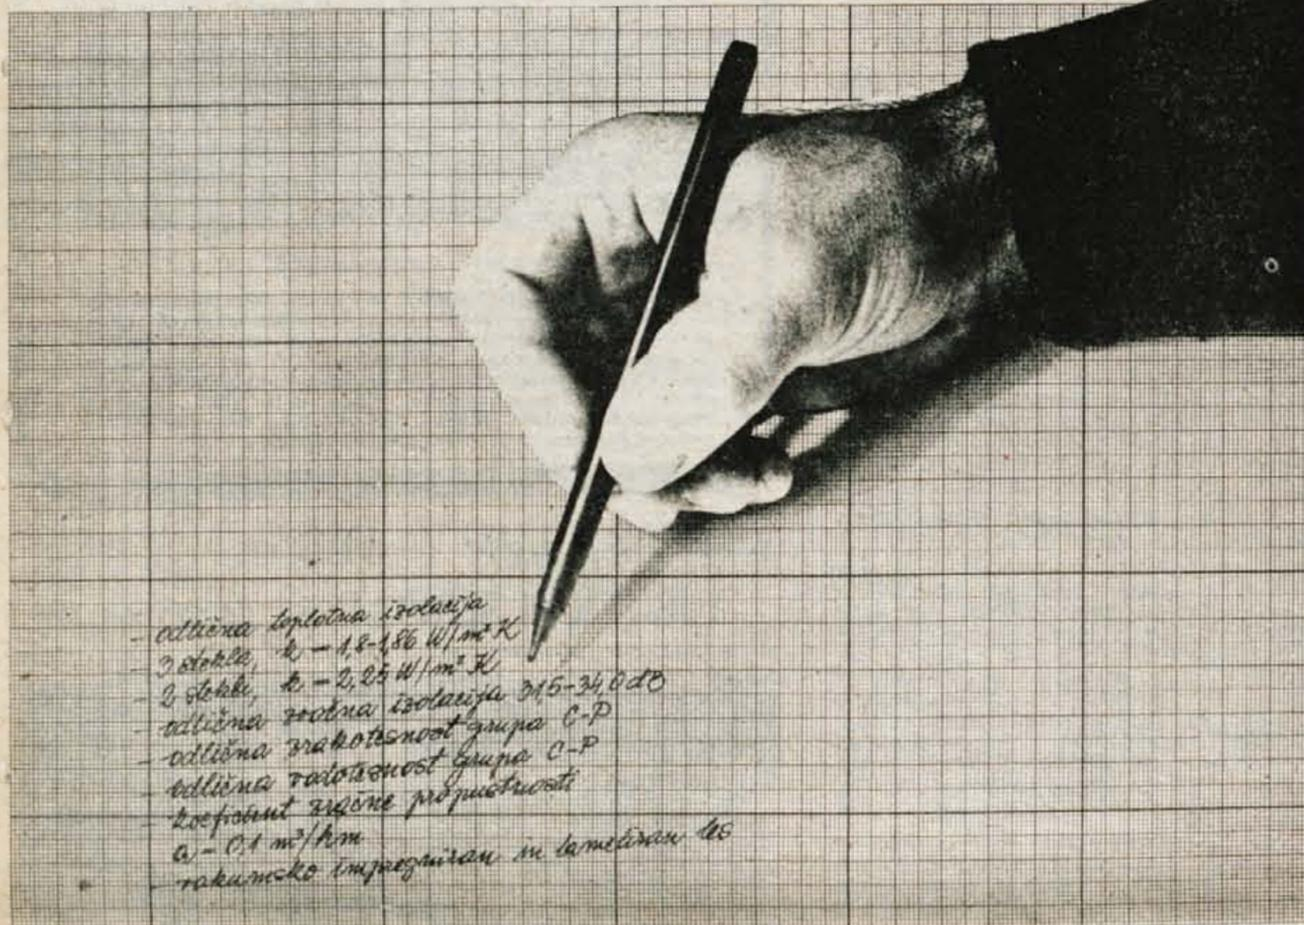 - odlična toplotna izolacija
- 3 stekla, k - 1,8-1,86 W/m² K
- 2 stekli, k - 2,25 W/m² K
- odlična zvočna izolacija 31,5-34,0 dB
- odlična zrakotesnost grupa C-P
- odlična vodotesnost grupa C-P
- koeficient zračne propustnosti
a - 0,1 m³/hm
- vakumsko impregniran in lameliran les